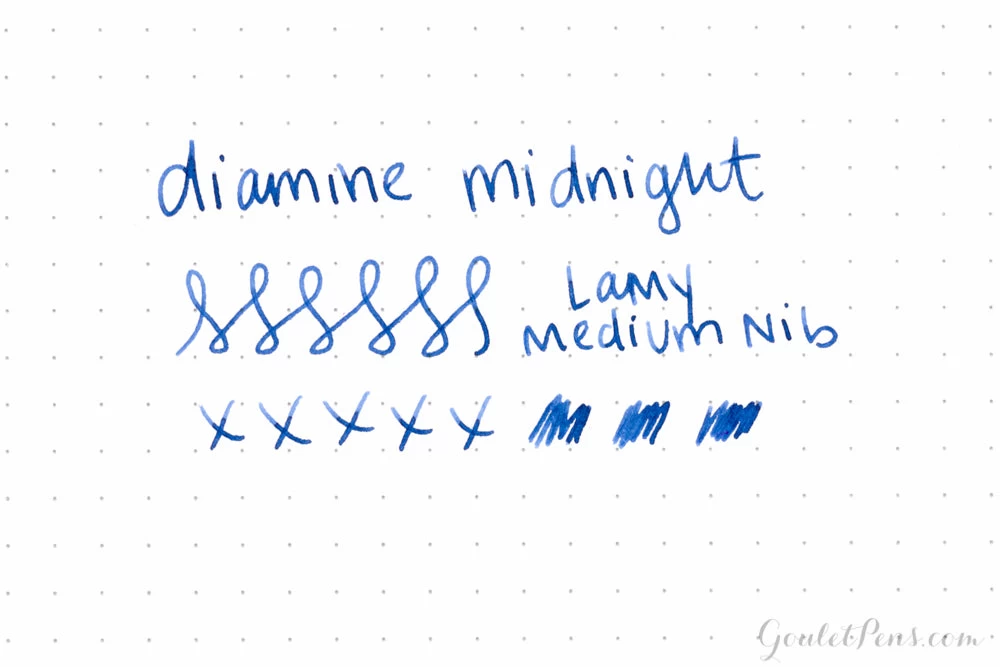 diamine midnight
Lamy
medium Nib
x x x x x
GouletPens.com